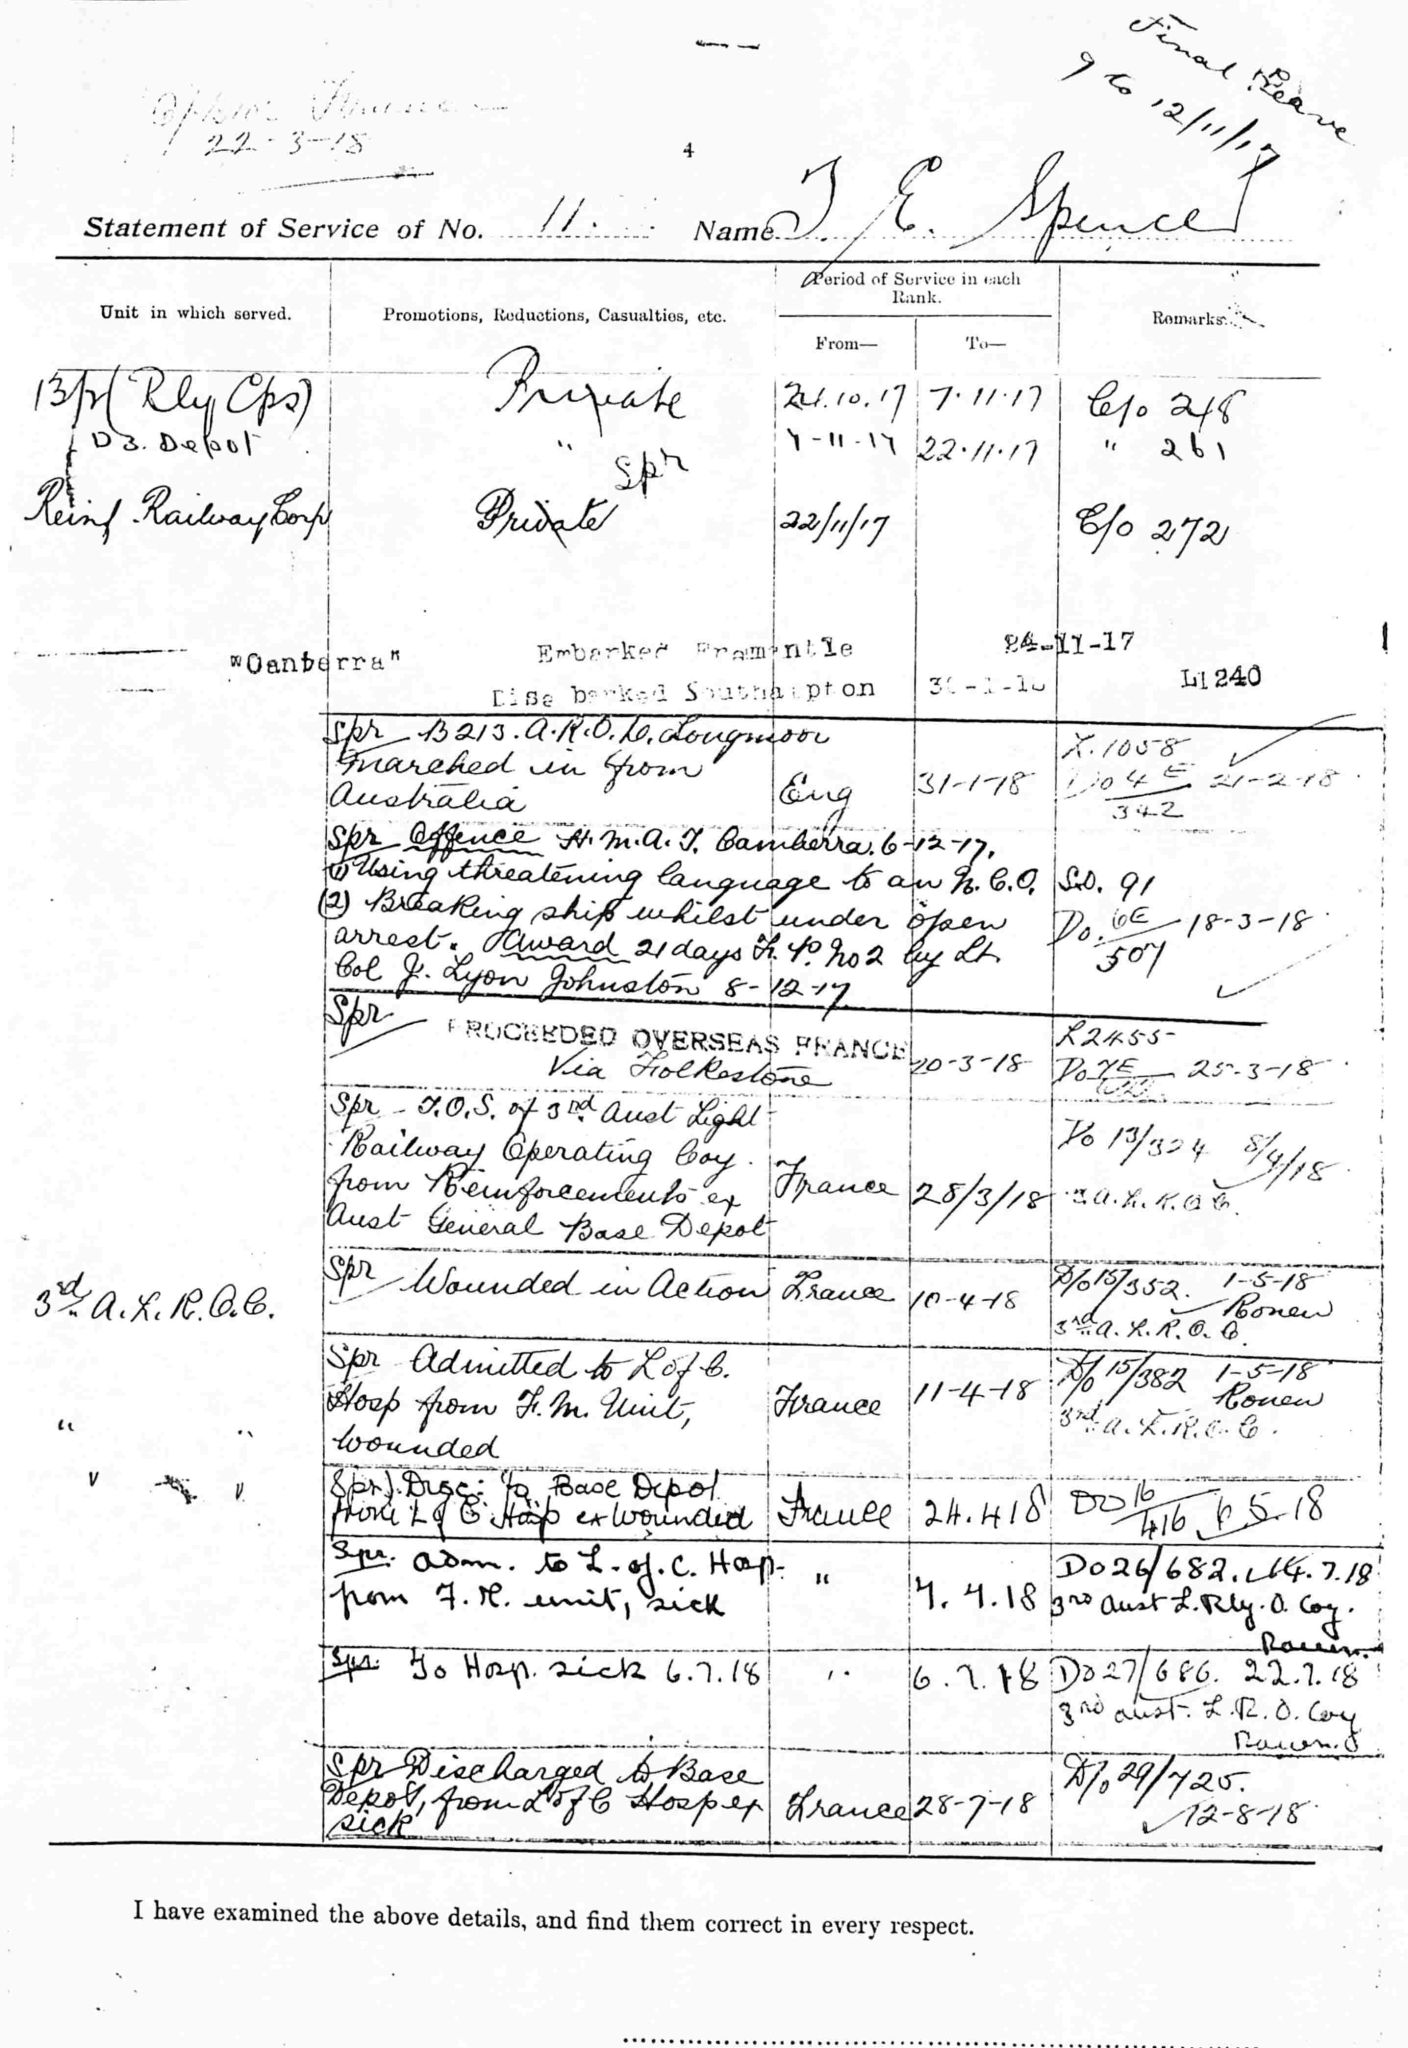 Final Leave
9 to 12/11/17
22-3-18
4
Statement of Service of No. 11. Name J E. Spence
Unit in which served.
Promotions, Reductions, Casualties, etc.
Period of Service in each Rank.
From—
To—
Remarks.
(Rly Cps) Private 24.10.17 7.11.17 C/o 248
D3. Depot " Spr 7-11-17 22.11.17 " 261
Reinf. Railway Corp Private 22/11/17 C/o 272
"Canberra" Embarked Fremantle 24-11-17
Disembarked Southampton L1240
Spr B213. A.R.O.D. Longmoor
marched in from
Australia Eng 31-1-18
L.1058
Do 4E/342 21-2-18
Spr Offence H.M.A.T. Canberra. 6-12-17.
(1) Using threatening language to an N.C.O.
(2) Breaking ship whilst under open
arrest. Award 21 days F.P. No 2 by Lt
Col J. Lyon Johnston 8-12-17
S.O. 91
Do. 6E/507 18-3-18
Spr
PROCEEDED OVERSEAS FRANCE
Via Folkestone 20-3-18
L2455
Do 7E 25-3-18
Spr - T.O.S. of 3rd Aust Light
Railway Operating Coy.
from Reinforcements ex
Aust General Base Depot France 28/3/18
Do 13/324 8/4/18
3 A.L.R.O.C.
3rd A.L.R.O.C.
Spr Wounded in Action France 10-4-18
D/o 15/352. 1-5-18
Rouen
3rd A.L.R.O.C.
Spr Admitted to L of C.
Hosp from F.M. Unit,
wounded France 11-4-18
D/o 15/382 1-5-18
Rouen
3rd A.L.R.O.C.
" "
Spr. Disc: to Base Depot
from L of C Hosp ex wounded France 24.4.18
DO 16/416 5.18
Spr. adm. to L. of. C. Hosp.
from F. M. unit, sick " 7.18
Do 26/682. 14.7.18
3rd Aust L. Rly. O. Coy.
Rouen.
Spr. To Hosp. sick 6.7.18 " 6.7.18
Do 27/686. 22.7.18
3rd Aust. L.R.O. Coy
Rouen.
Spr Discharged to Base
Depot, from L of C Hosp ex
sick France 28-7-18
D/o 29/725.
12-8-18
I have examined the above details, and find them correct in every respect.